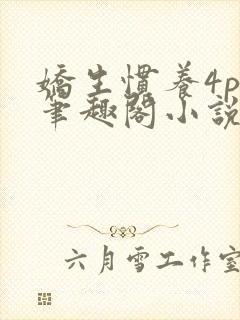 嬌生慣養4p
筆趣閣小說
六月雪工作室